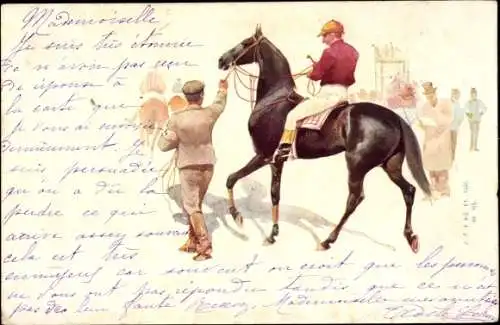 Mademoiselle
Je suis très étonnée
de n'avoir pas reçu
de réponse à
la carte que
je vous ai envoyée
dernièrement. Je
suis persuadée
qu'on a dû la
perdre ce qui
arrive assez souvent
cela est très
ennuyeux car souvent on croit que les personnes
ne vous ont pas répondu tandis que ce n'est
pas de leur faute Recevez Mademoiselle mes